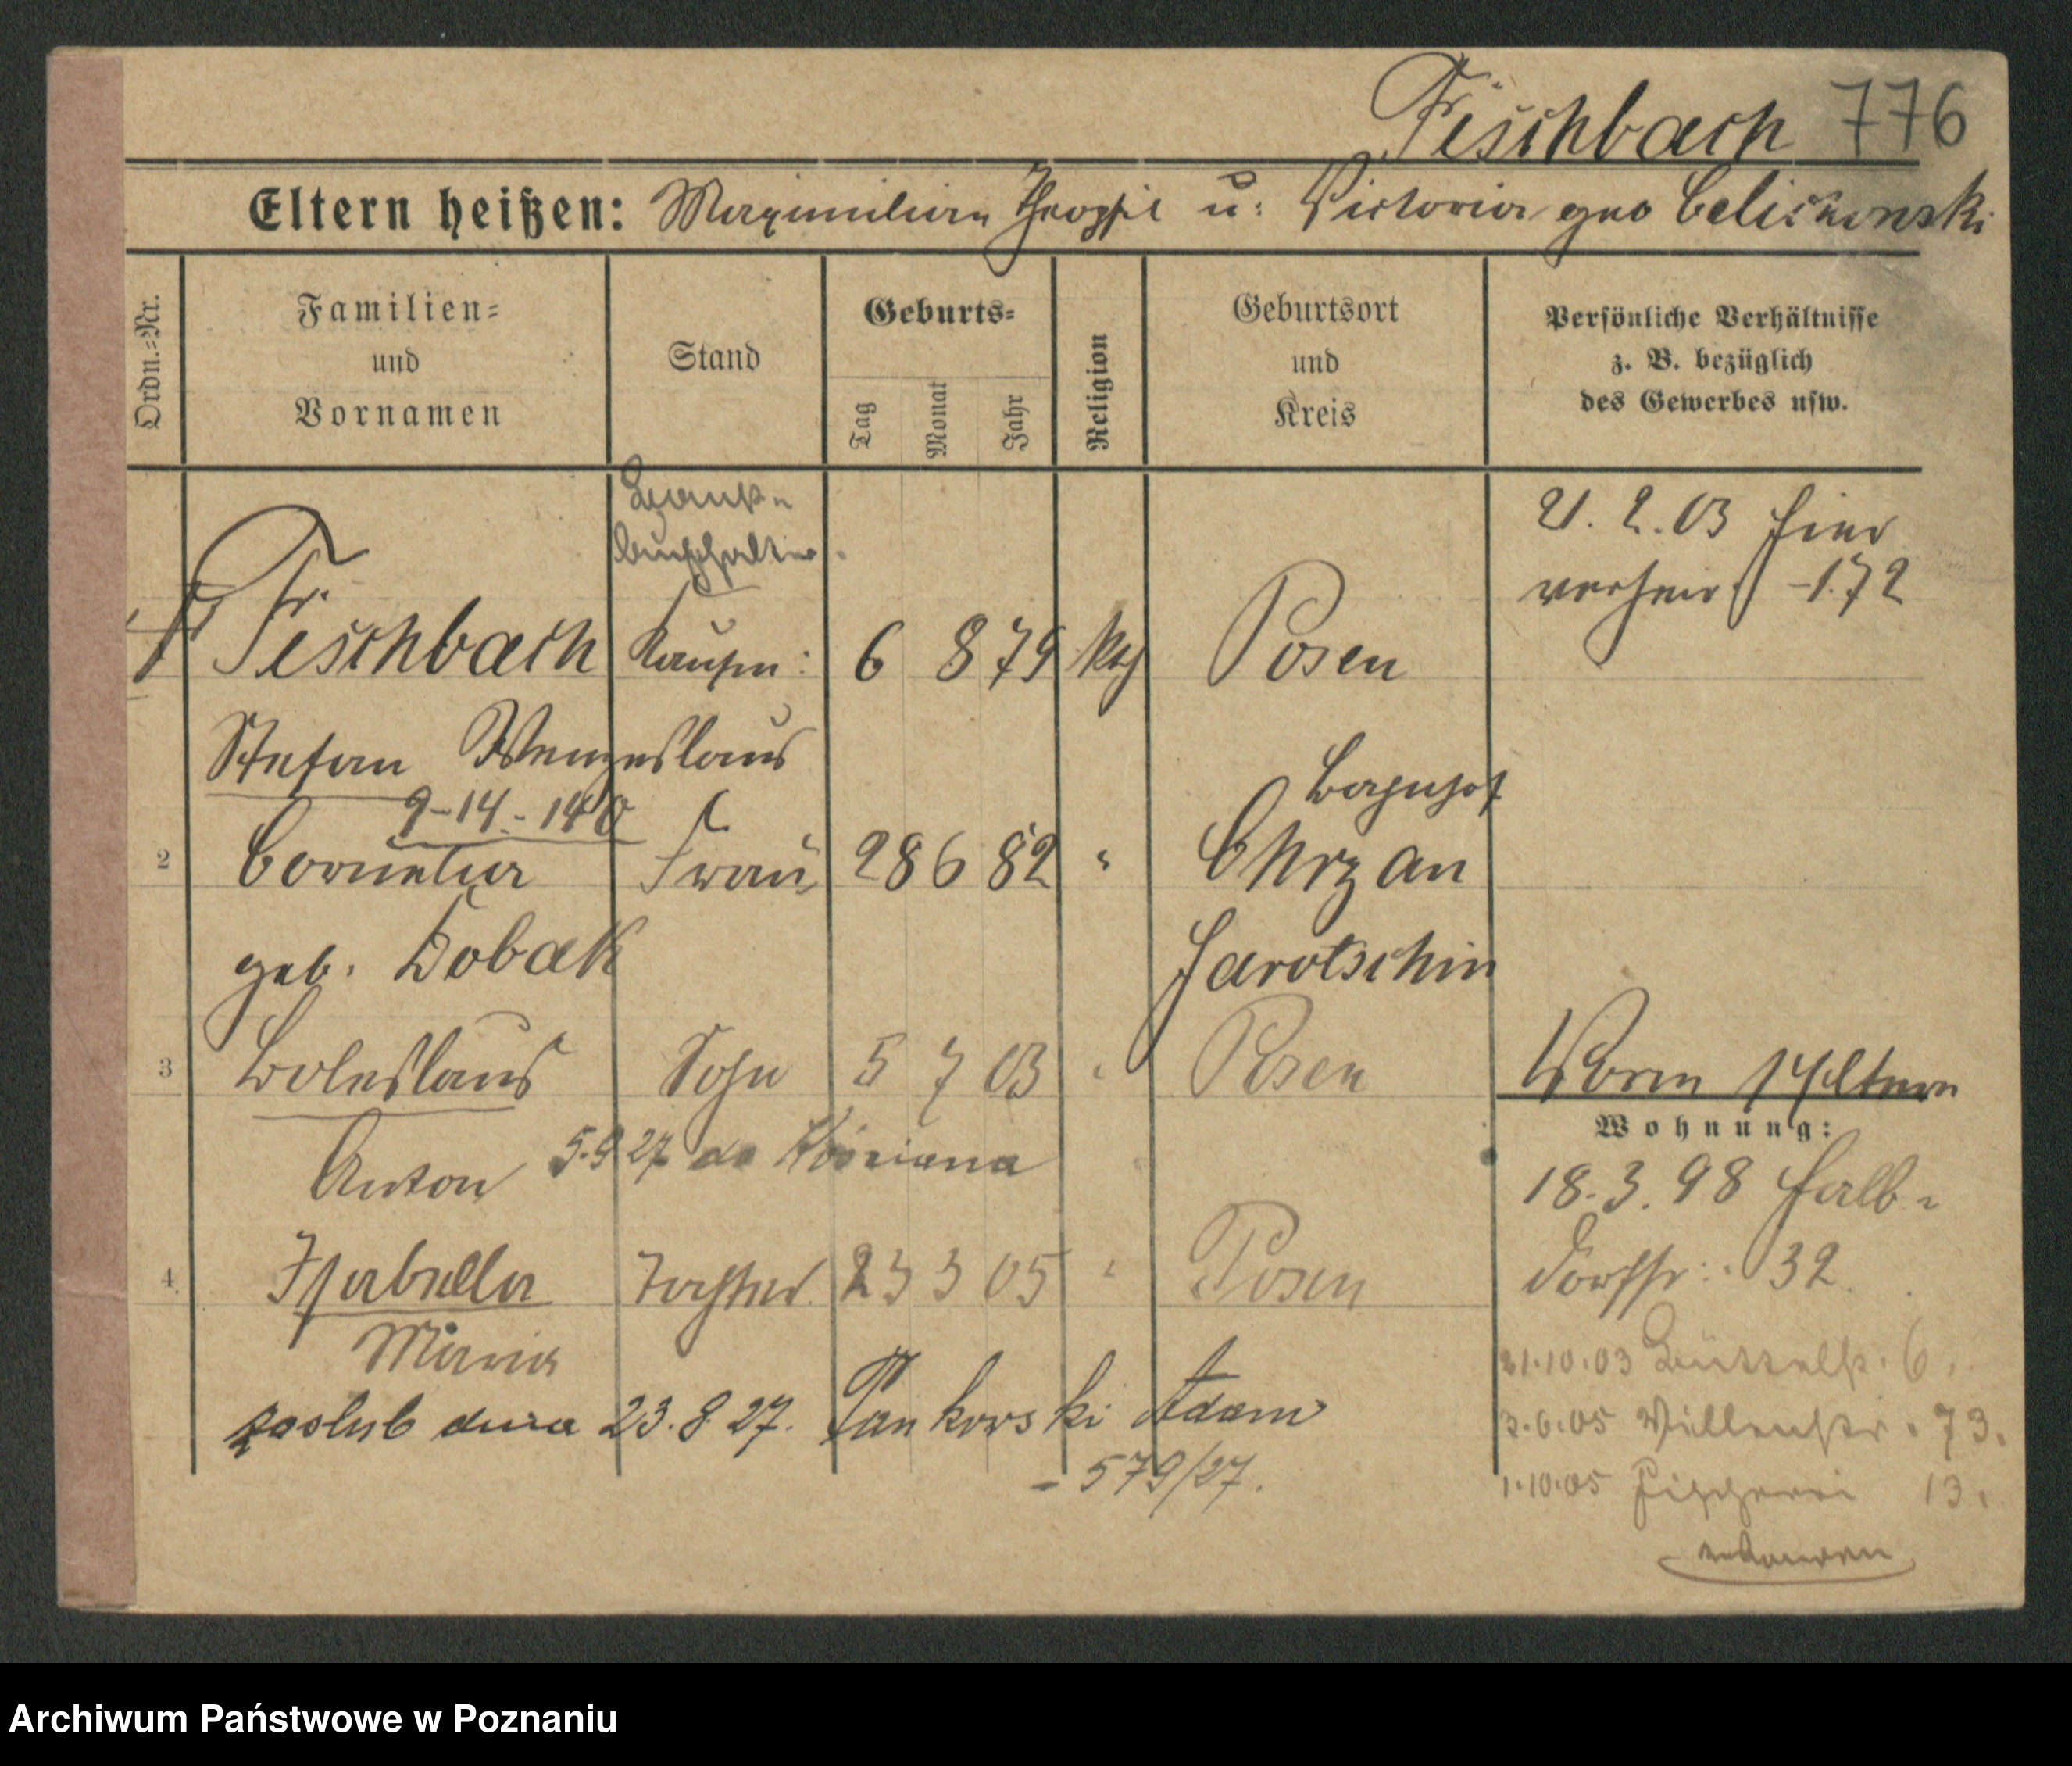 Fischbach 776
Eltern heißen: Maximilian Theophil u: Victoria geb Celichowski
Ordn.=Nr.
Familien= und Vornamen
Stand
Geburts=
Tag
Monat
Jahr
Religion
Geburtsort und Kreis
Persönliche Verhältnisse z. B. bezüglich des Gewerbes usw.
buchhalter
21. 2. 03 hier
verheir. -1.72
Fischbach Kaufm: 6 8 79 kth Posen
Stefan Wenzeslaus
9-14-140
Bahnhof
2 Cornelia Frau 28 6 82 " Chrzan
geb. Bobak Jarotschin
3 Boleslaus Sohn 5 7 03 " Posen
Anton 5.9 27 do
4. Isabella Tochter 23 3 05 " Posen
Maria
zaślub dnia 23.8.27. Jankowski Adam
- 579/27.
Eltern
Wohnung:
18.3.98 Halb=
dorfstr: 32
21.10.03 Büttelstr. 6.
3.6.05 Wallenstr. 73.
1.10.05 Fischerei 13.